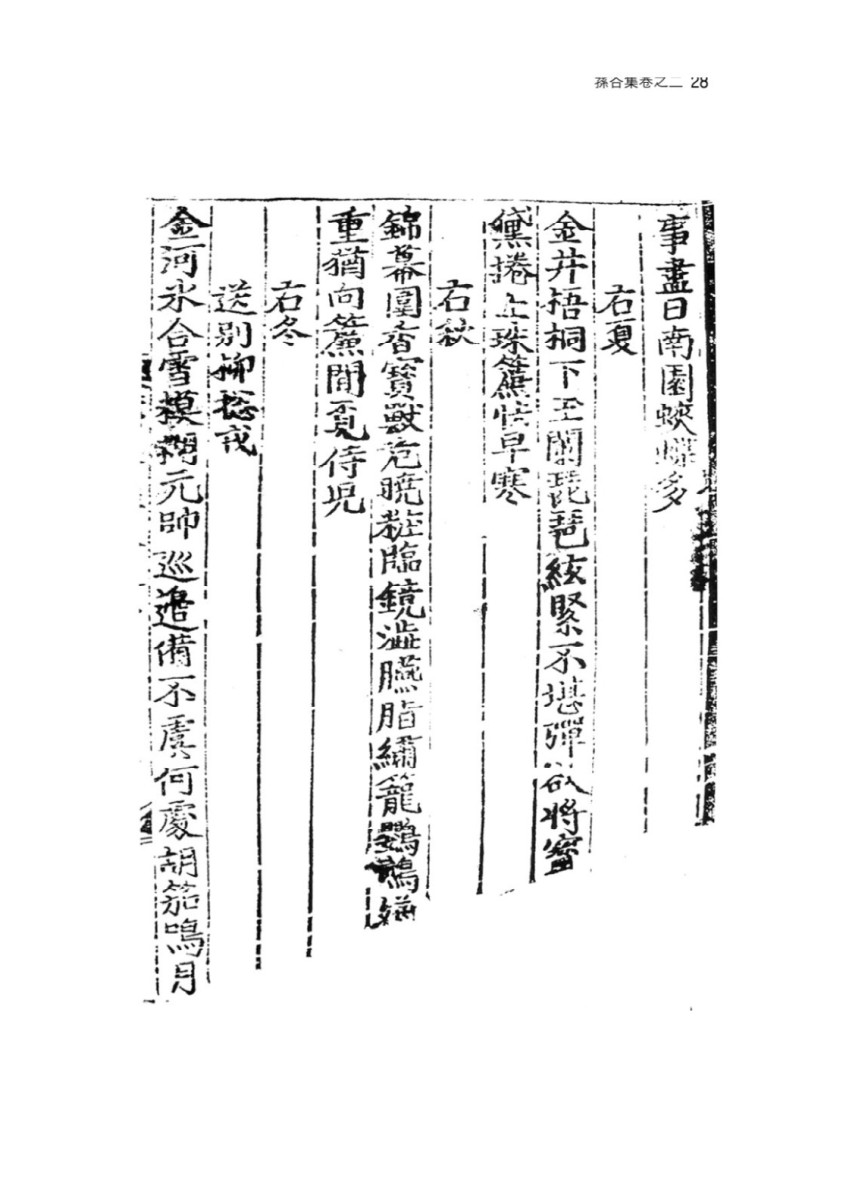 孫谷集卷之二 28
事盡日南園蛺蝶多
右夏
金井梧桐下玉闌琵琶絃緊不堪彈欲將蜜
黛捲上珠簾怯早寒
右秋
錦幕圍香寶獸危曉粧臨鏡澁臙脂繡籠鸚鵡嫌
重猶向簾間覓侍兒
右冬
送別柳摠戎
金河氷合雪模糊元帥巡邊備不虞何處胡笳鳴月